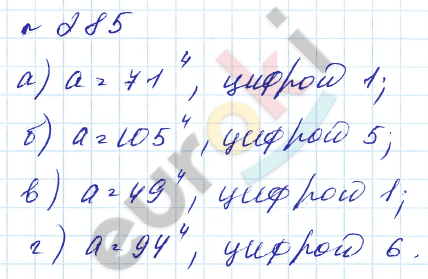 № 285
а) a = 71⁴, цифрой 1;
б) a = 105⁴, цифрой 5;
в) a = 49⁴, цифрой 1;
г) a = 94⁴, цифрой 6.
euroki